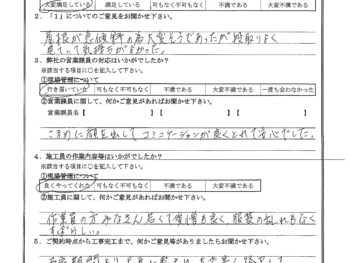 大変満足している 満足している 可もなく不可もなく 不満である 大変不満である
2．「1」についてのご意見をお聞かせ下さい。
屋根が急傾斜の為大変そうであったが段取りよく
見ていて気持ちがよかった。
3．弊社の営業課員の対応はいかがでしたか？
※該当する項目に○を記入して下さい。
①現場管理について
行き届いていた 可もなく不可もなく 不満である 大変不満である 一度も会わなかった
②営業課員に関して、何かご意見があればお聞かせ下さい。
営業課員名【 】【 】【 】
こまめに顔を出してコミュニケーションが良くとれて安心でした。
4．施工員の作業内容等はいかがでしたか？
※該当する項目に○を記入して下さい。
①現場管理について
良くやってくれた 可もなく不可もなく 不満である 大変不満である
②施工員に関して、何かご意見があればお聞かせ下さい。
作業員の方みなさん若くて愛想も良く、服装の乱れもなく
すばらしい。
5．ご契約時点から工事完工まで、何かご意見等がありましたらお聞かせ下さい。